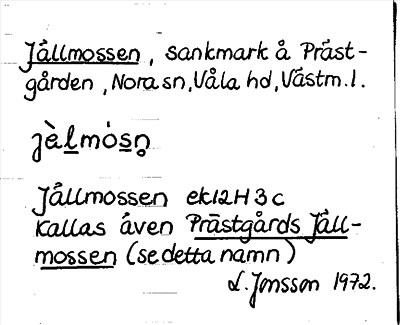 Jällmossen, sankmark å Präst-
gården, Nora sn, Våla hd, Västm. l.
jὲlmósn̥
Jällmossen ek12H3c
Kallas även Prästgårds Jäll-
mossen (se detta namn)
L. Jonsson 1972.